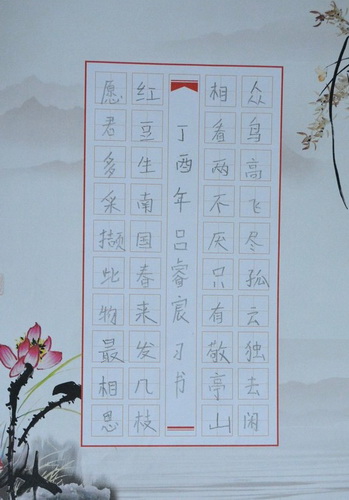 众鸟高飞尽孤云独去闲
相看两不厌只有敬亭山
丁酉年吕睿宸习书
红豆生南国春来发几枝
愿君多采撷此物最相思